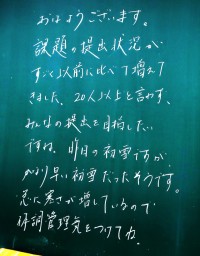 おはようございます。
課題の提出状況が
すごく以前に比べて増えて
きました、20人以上と言わず、
みんなの提出を目指したい
ですね、昨日の初雪ですが
かなり早い初雪だったそうです。
急に寒さが増しているので
体調管理気をつけてね